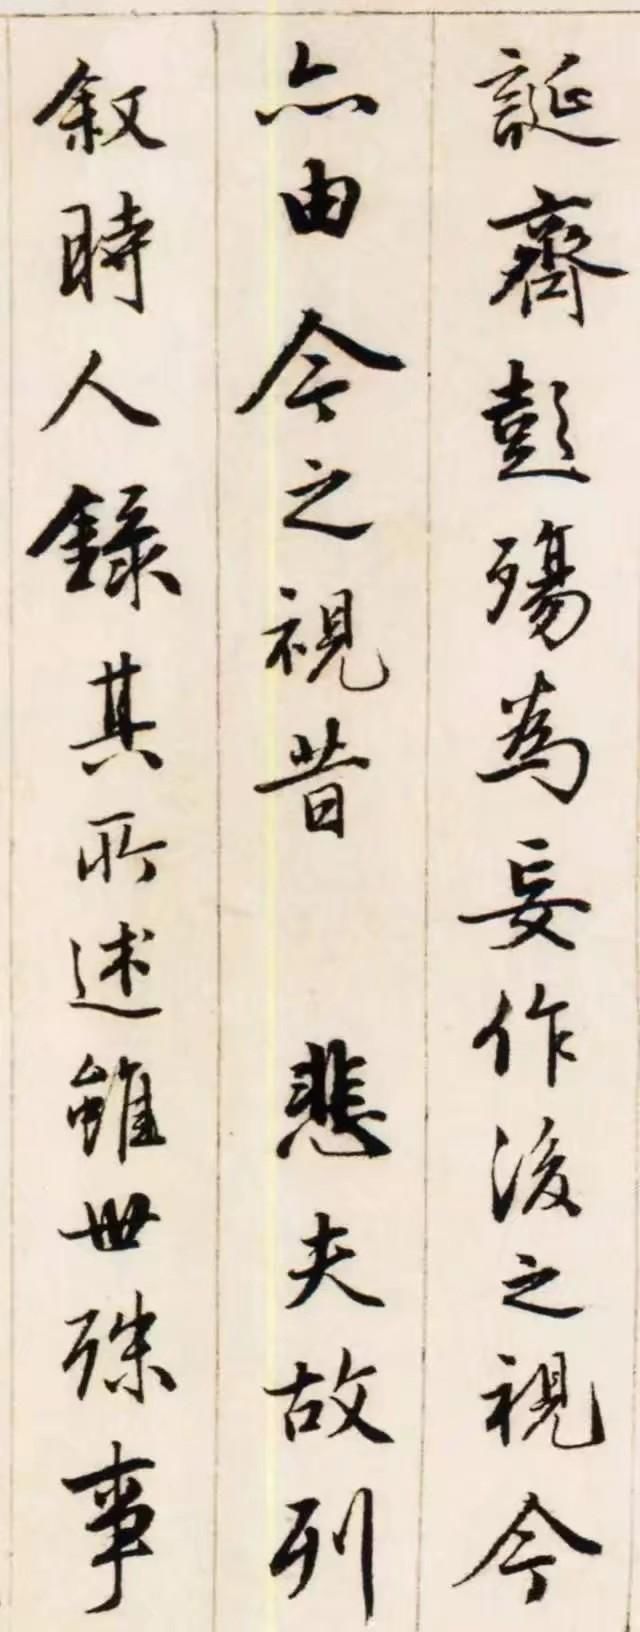 誕齊彭殤為妄作後之視今
亦由今之視昔 悲夫故列
叙時人錄其所述雖世殊事